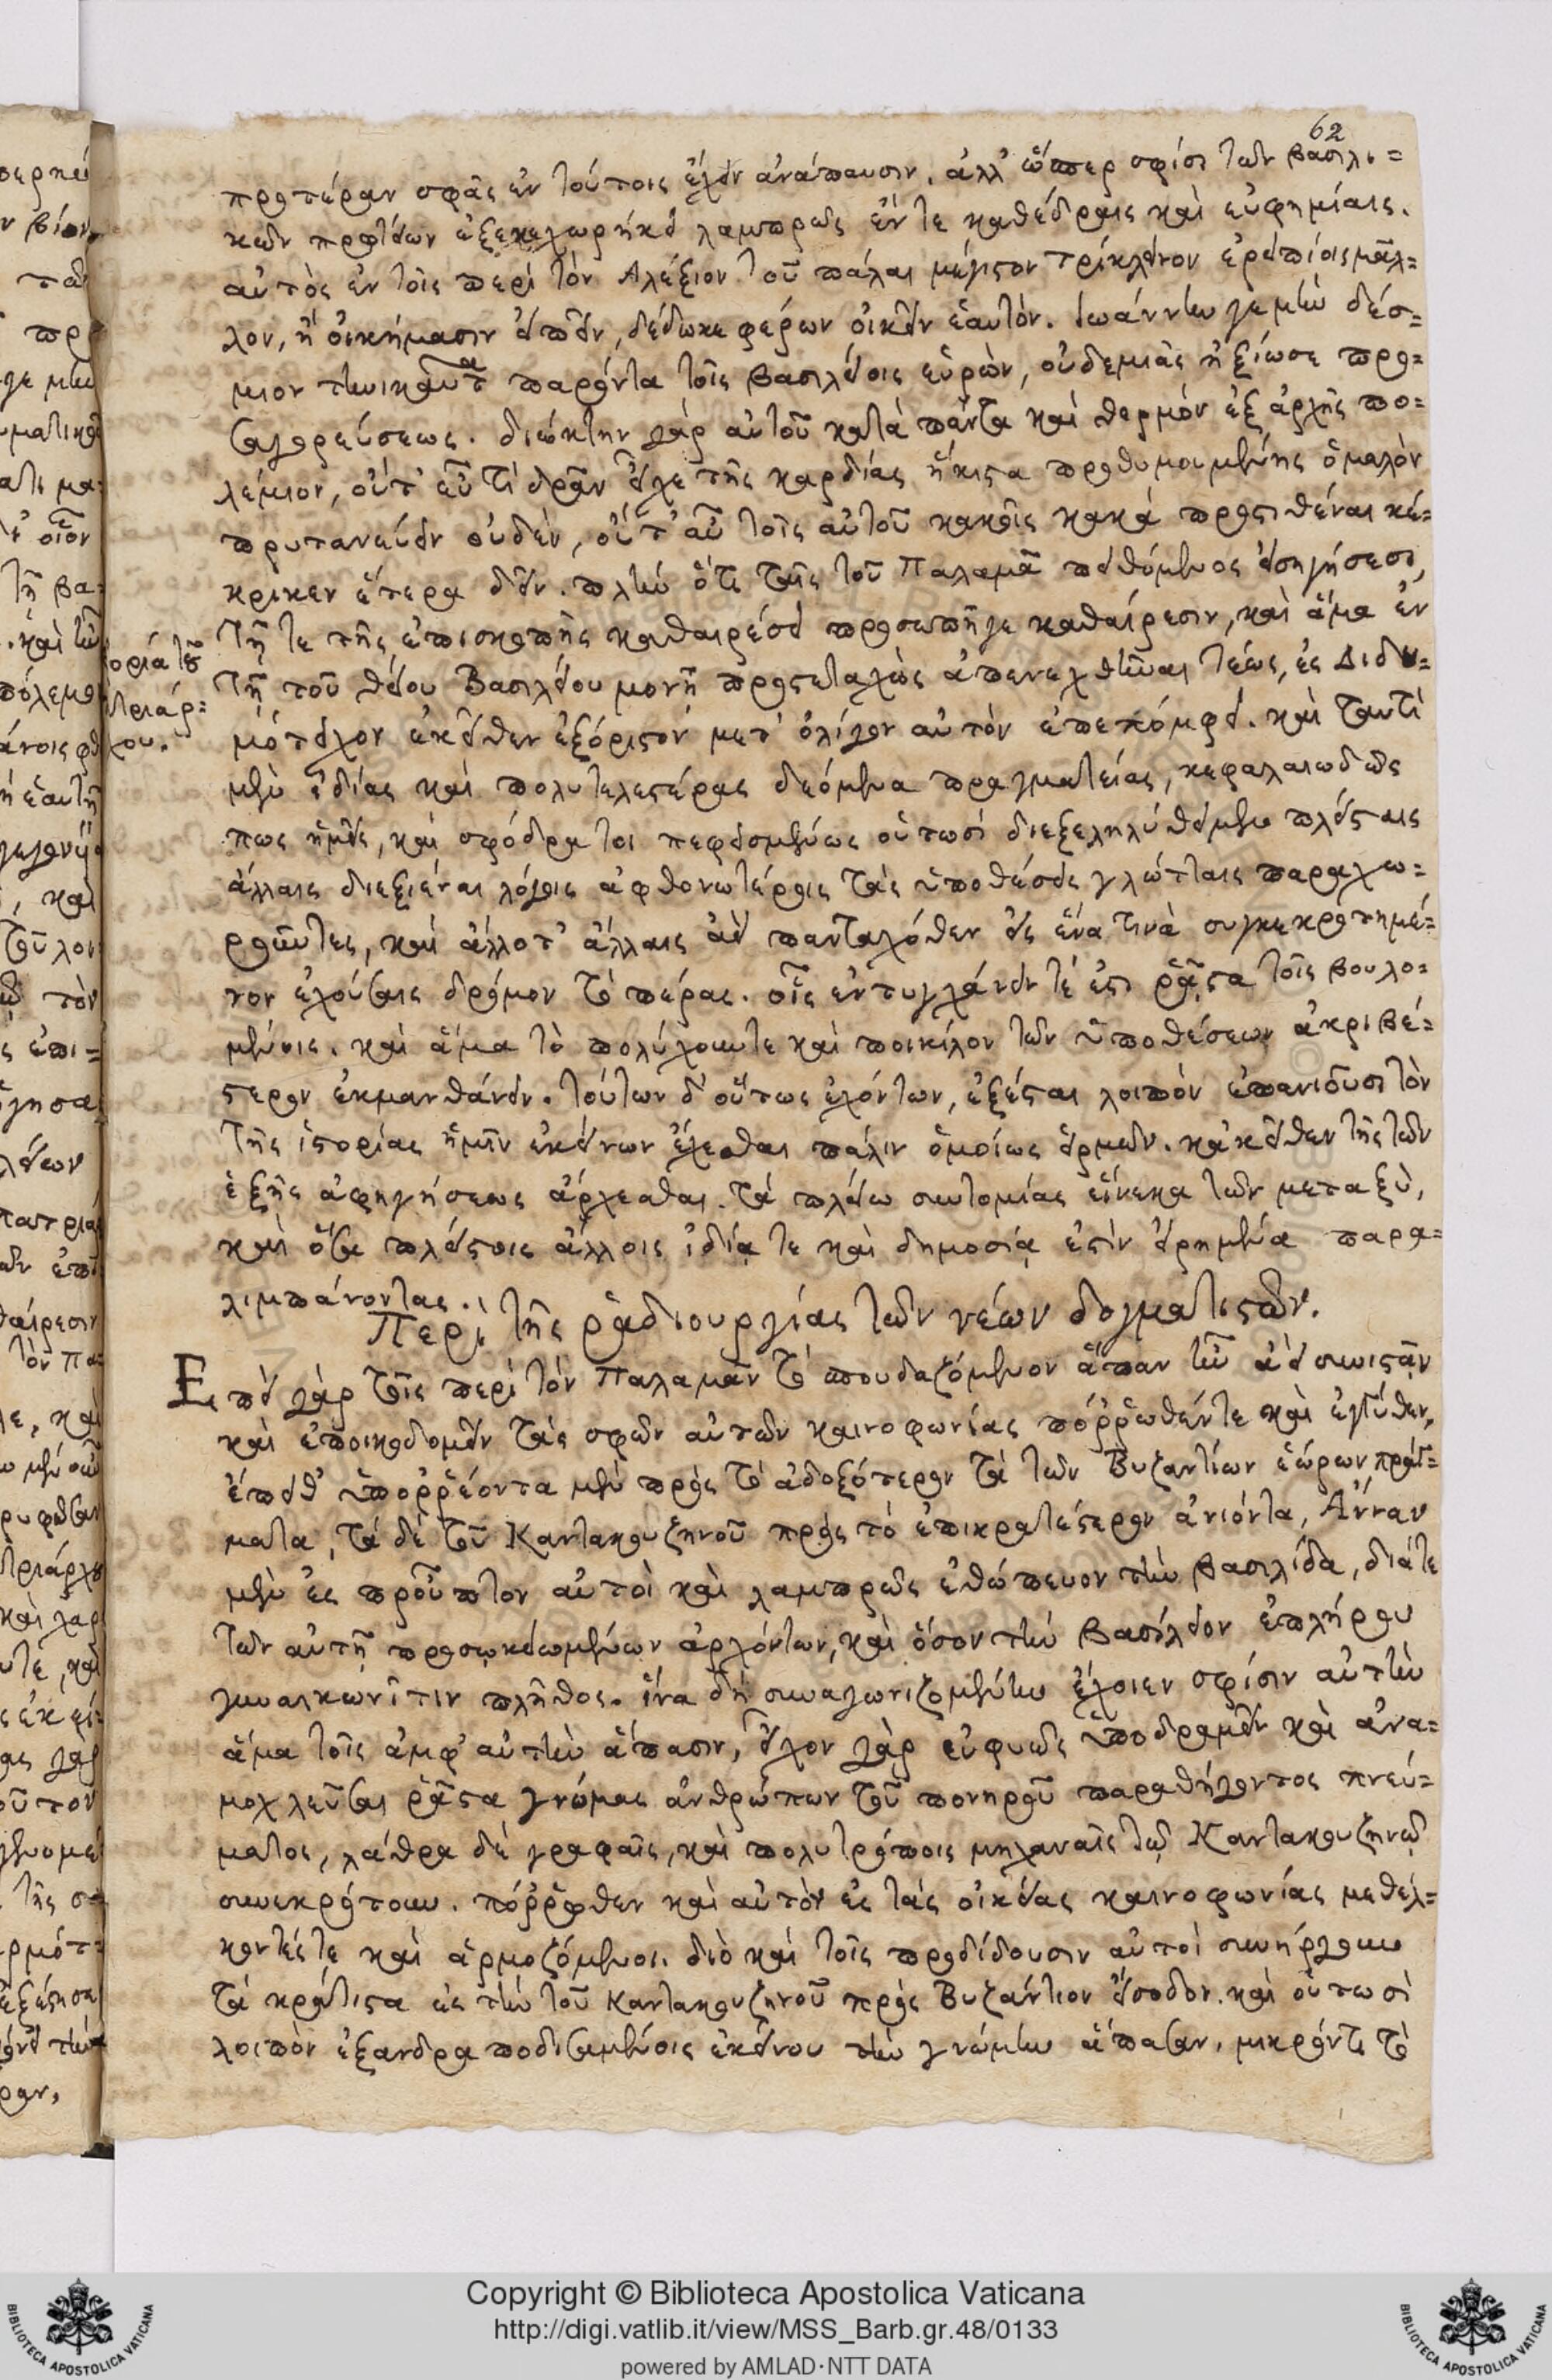 62
προτέραν σφᾶς ἐν τούτοις ἔχειν ἀνάπαυσιν. ἀλλ' ὥσπερ σφίσι τῶν βασιλι=
κῶν πρωτείων ἐξεκεχωρήκει λαμπρῶς ἔν τε καθέδραις καὶ εὐφημίαις.
αὐτὸς ἐν τοῖς περὶ τὸν Ἀλέξιον τοῦ πάλαι μέγιστον τρίκλινον ἐρειπίοις μᾶλ=
λον, ἢ οἰκήμασιν εἰπεῖν, δέδωκε φέρων οἰκεῖν ἑαυτόν. Ἰωάννην γε μὴν δέσ=
μιον τηνικαῦτα παρόντα τοῖς βασιλείοις εὑρὼν, οὐδεμιᾶς ἠξίωσε προ=
σαγορεύσεως. διώκτην γὰρ αὐτοῦ κατὰ πάντα καὶ θερμὸν ἐξ ἀρχῆς πο=
λέμιον, οὔτ' εὖ τι δρᾶν εἶχε τῆς καρδίας ἥκιστα προθυμουμένης ὁμαλὸν
πρυτανεύειν οὐδὲν, οὔτ' αὖ τοῖς αὐτοῦ κακοῖς κακὰ προστιθέναι κέ=
κρικεν ἕτερα δεῖν. πλὴν ὅτι ταῖς τοῦ Παλαμᾶ πειθόμενος εἰσηγήσεσι,
τῇ τε τῆς ἐπισκοπῆς καθαιρέσει προσεπῆγε καθαίρεσιν, καὶ ἅμα ἐν
τῇ τοῦ θείου Βασιλείου μονῇ προστεταχὼς ἀπενεχθῆναι τέως, ἐς Διδυ=
μότειχον ἐκεῖθεν ἐξόριστον μετ' ὀλίγον αὐτὸν ἐπεπόμφει. καὶ ταυτὶ
μὲν ἰδίας καὶ πολυτελεστέρας δεόμενα πραγματείας, κεφαλαιωδῶς
πως ἡμεῖς, καὶ σφόδρα τοι πεφεισμένως οὑτωσὶ διεξεληλύθειμεν πλείσταις
ἄλλαις διεξιέναι λόγοις ἀφθονωτέροις τὰς ὑποθέσεις γλώτταις παραχω=
ροῦντες, καὶ ἄλλοτ' ἄλλαις ἀεὶ πανταχόθεν εἰς ἕνα τινὰ συγκεκροτημέ=
νον ἐχούσαις δρόμον τὸ πέρας. οἷς ἐντυγχάνειν τέ ἐστι ῥᾷστα τοῖς βουλο=
μένοις. καὶ ἅμα τὸ πολύχουν τε καὶ ποικίλον τῶν ὑποθέσεων ἀκριβέ=
στερον ἐκμανθάνειν. τούτων δ' οὕτως ἐχόντων, ἐξέσται λοιπὸν ἐπανιοῦσι τὸν
τῆς ἱστορίας ἡμῖν ἐκείνων ἔχεσθαι πάλιν ὁμοίως εἱρμῶν. κἀκεῖθεν τῆς τῶν
ἑξῆς ἀφηγήσεως ἄρχεσθαι. τὰ πλείω συντομίας εἵνεκα τῶν μεταξὺ,
καὶ ὅσα πλείστοις ἄλλοις ἰδίᾳ τε καὶ δημοσίᾳ ἐστὶν εἰρημένα παρα=
λιμπάνοντας.
Περὶ τῆς ῥᾳδιουργίας τῶν νέων δογματιστῶν.
Ἐπεὶ γὰρ τοῖς περὶ τὸν Παλαμᾶν τὸ σπουδαζόμενον ἅπαν ἦν ἀεὶ συνιστᾶν
καὶ ἐποικοδομεῖν τὰς σφῶν αὐτῶν καινοφωνίας πόρρωθέν τε καὶ ἐγγύθεν,
ἔπειθ' ὑπορρέοντα μὲν πρὸς τὸ ἀδοξότερον τὰ τῶν Βυζαντίων ἑώρων πράγ=
ματα, τὰ δὲ τοῦ Καντακουζηνοῦ πρὸς τὸ ἐπικρατέστερον ἀνιόντα, Ἄνναν
μὲν ἐς προὖπτον αὐτοὶ καὶ λαμπρῶς ἐθώπευον τὴν βασιλίδα, διά τε
τῶν αὐτῇ προσῳκειωμένων ἀρχόντων, καὶ ὅσον τὴν βασίλειον ἐπλήρου
γυναικωνῖτιν πλῆθος. ἵνα δὴ συναγωνιζομένην ἔχοιεν σφίσιν αὐτὴν
ἅμα τοῖς ἀμφ' αὐτὴν ἅπασιν, εἶχον γὰρ εὐφυῶς ὑποδραμεῖν καὶ ἀνα=
μοχλεῦσαι ῥᾷστα γνώμας ἀνθρώπων τοῦ πονηροῦ παραθήγοντος πνεύ=
ματος, λάθρα δὲ γραφαῖς, καὶ πολυτρόποις μηχαναῖς τῷ Καντακουζηνῷ
συνεκρότουν. πόρρωθεν καὶ αὐτὸν ἐς τὰς οἰκείας καινοφωνίας μεθέλ=
κοντές τε καὶ ἁρμοζόμενοι. διὸ καὶ τοῖς προδίδουσιν αὐτοὶ συνήργουν
τὰ κράτιστα ἐς τὴν τοῦ Καντακουζηνοῦ πρὸς Βυζάντιον εἴσοδον. καὶ οὑτωσὶ
λοιπὸν ἐξανδραποδισαμένοις ἐκείνου τὴν γνώμην ἅπασαν, μικρόν τι τὸ
Copyright © Biblioteca Apostolica Vaticana
http://digi.vatlib.it/view/MSS_Barb.gr.48/0133
powered by AMLAD·NTT DATA
BIBLIOTECA APOSTOLICA VATICANA
BIBLIOTECA APOSTOLICA VATICANA